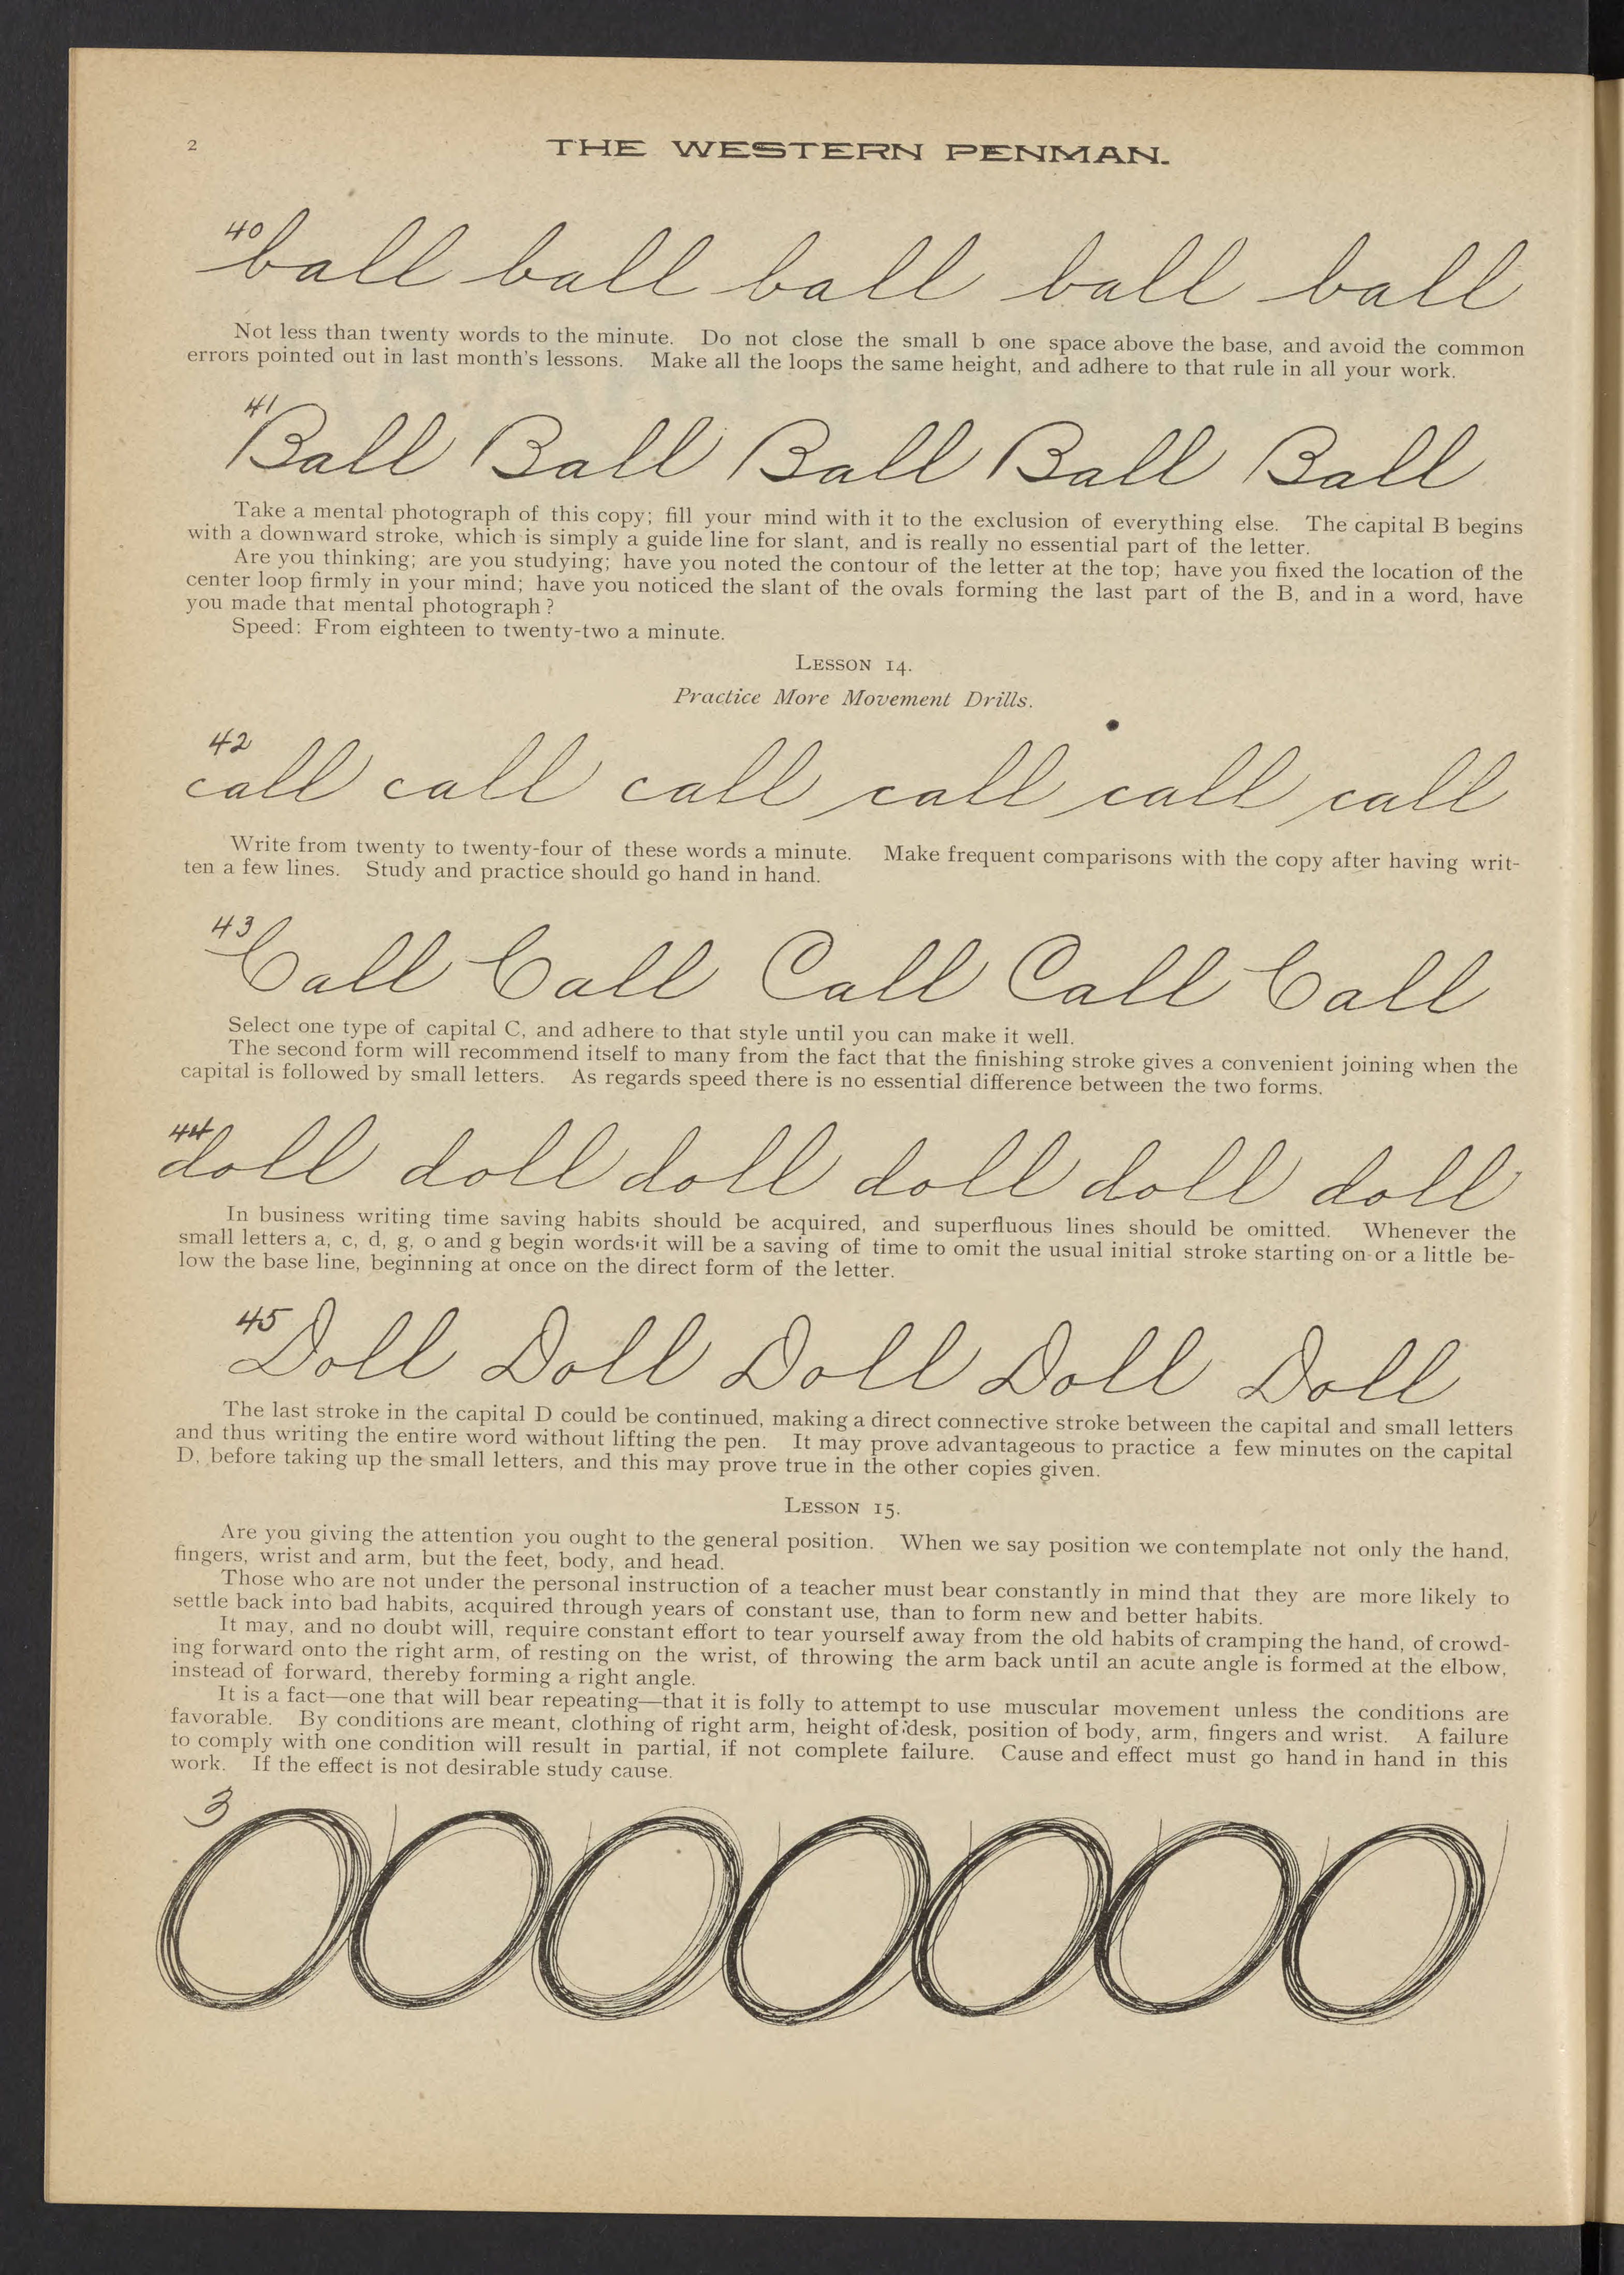 2
THE WESTERN PENMAN.
40
ball ball ball ball ball
Not less than twenty words to the minute. Do not close the small b one space above the base, and avoid the common
errors pointed out in last month's lessons. Make all the loops the same height, and adhere to that rule in all your work.
41
Ball Ball Ball Ball Ball
Take a mental photograph of this copy; fill your mind with it to the exclusion of everything else. The capital B begins
with a downward stroke, which is simply a guide line for slant, and is really no essential part of the letter.
Are you thinking; are you studying; have you noted the contour of the letter at the top; have you fixed the location of the
center loop firmly in your mind; have you noticed the slant of the ovals forming the last part of the B, and in a word, have
you made that mental photograph?
Speed: From eighteen to twenty-two a minute.
LESSON 14.
Practice More Movement Drills.
42
call call call call call call
Write from twenty to twenty-four of these words a minute. Make frequent comparisons with the copy after having writ-
ten a few lines. Study and practice should go hand in hand.
43
Call Call Call Call Call
Select one type of capital C, and adhere to that style until you can make it well.
The second form will recommend itself to many from the fact that the finishing stroke gives a convenient joining when the
capital is followed by small letters. As regards speed there is no essential difference between the two forms.
44
doll doll doll doll doll doll
In business writing time saving habits should be acquired, and superfluous lines should be omitted. Whenever the
small letters a, c, d, g, o and g begin words it will be a saving of time to omit the usual initial stroke starting on or a little be-
low the base line, beginning at once on the direct form of the letter.
45
Doll Doll Doll Doll Doll
The last stroke in the capital D could be continued, making a direct connective stroke between the capital and small letters
and thus writing the entire word without lifting the pen. It may prove advantageous to practice a few minutes on the capital
D, before taking up the small letters, and this may prove true in the other copies given.
LESSON 15.
Are you giving the attention you ought to the general position. When we say position we contemplate not only the hand,
fingers, wrist and arm, but the feet, body, and head.
Those who are not under the personal instruction of a teacher must bear constantly in mind that they are more likely to
settle back into bad habits, acquired through years of constant use, than to form new and better habits.
It may, and no doubt will, require constant effort to tear yourself away from the old habits of cramping the hand, of crowd-
ing forward onto the right arm, of resting on the wrist, of throwing the arm back until an acute angle is formed at the elbow,
instead of forward, thereby forming a right angle.
It is a fact—one that will bear repeating—that it is folly to attempt to use muscular movement unless the conditions are
favorable. By conditions are meant, clothing of right arm, height of desk, position of body, arm, fingers and wrist. A failure
to comply with one condition will result in partial, if not complete failure. Cause and effect must go hand in hand in this
work. If the effect is not desirable study cause.
3